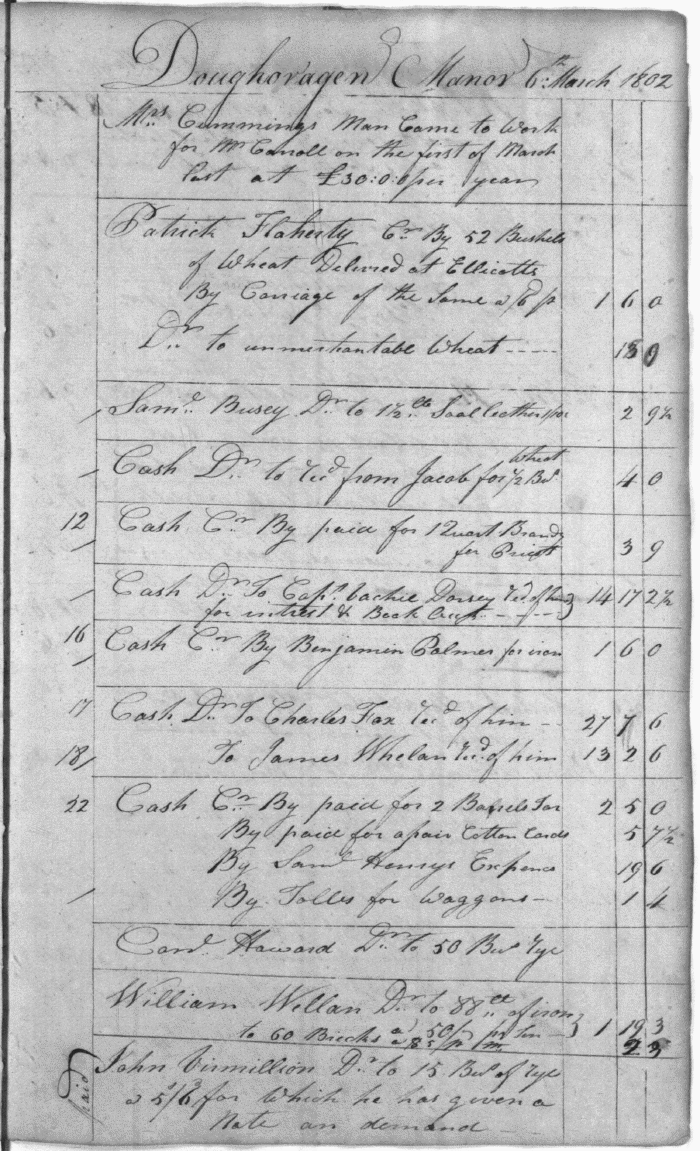 Doughoragen Manor 6th March 1802
Mrs Cummings Man Came to Work
for Mr Carroll on the first of March
last at £30:0:0 per year
Patrick Flaherty Cr By 52 Bushels
of Wheat Delivred at Ellicotts
By Carriage of the Same a /6 p 1 6 0
Dr to unmerchantable Wheat 13 9
Saml Busey Dr to 1½ lb Soal leather 2 9½
Wheat
Cash Dr to recd from Jacob for ½ Bul 4 0
12 Cash Cr By paid for 1 Quart Brandy
for Priest 3 9
Cash Dr To Capt Dorsey recd of him 14 17 2½
for intrest & Book
16 Cash Cr By Benjamin Palmer for iron 1 6 0
17 Cash Dr To Charles Fox recd of him 27 7 6
18 To James Whelan recd of him 13 2 6
22 Cash Cr By paid for 2 Barrels Tar 2 5 0
By paid for a pair Cotton Cards 5 7½
By Saml Henrys Expence 19 6
By Tolls for Waggons 1 4
Haward Dr to 50 Bul rye
William Wellan Dr to 88 lb of iron
a 50/ pr ton 1 19 3
to 60 Bricks a 85/ p m 2 3
paid John Virmillion Dr to 15 Bul of rye
a 5/6 for Which he has given a
Note on demand